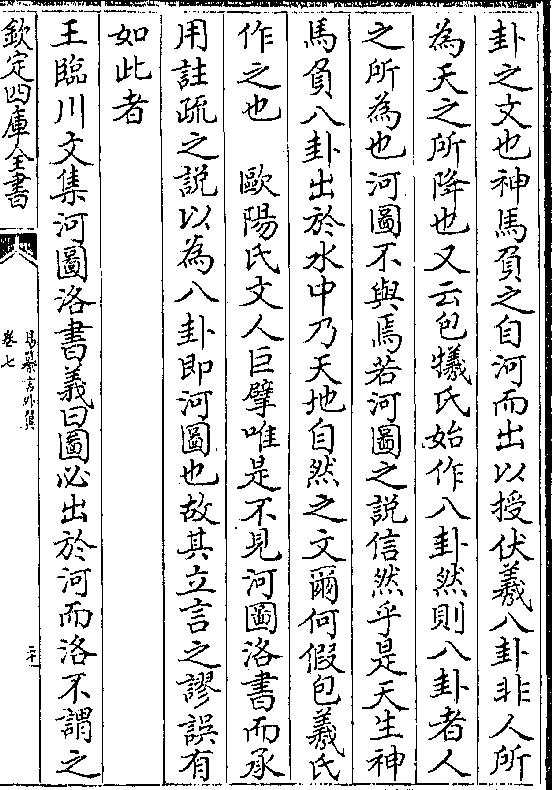 卦之文也神馬負之自河而出以授伏羲八卦非人所
為天之所降也又云包犧氏始作八卦然則八卦者人
之所為也河圖不與焉若河圖之說信然乎是天生神
馬負八卦出於水中乃天地自然之文爾何假包羲氏
作之也　歐陽氏文人巨擘唯是不見河圖洛書而承
用註疏之說以為八卦即河圖也故其立言之謬誤有
如此者
王臨川文集河圖洛書義曰圖必出於河而洛不謂之
欽定四庫全書
易纂言外翼
卷七